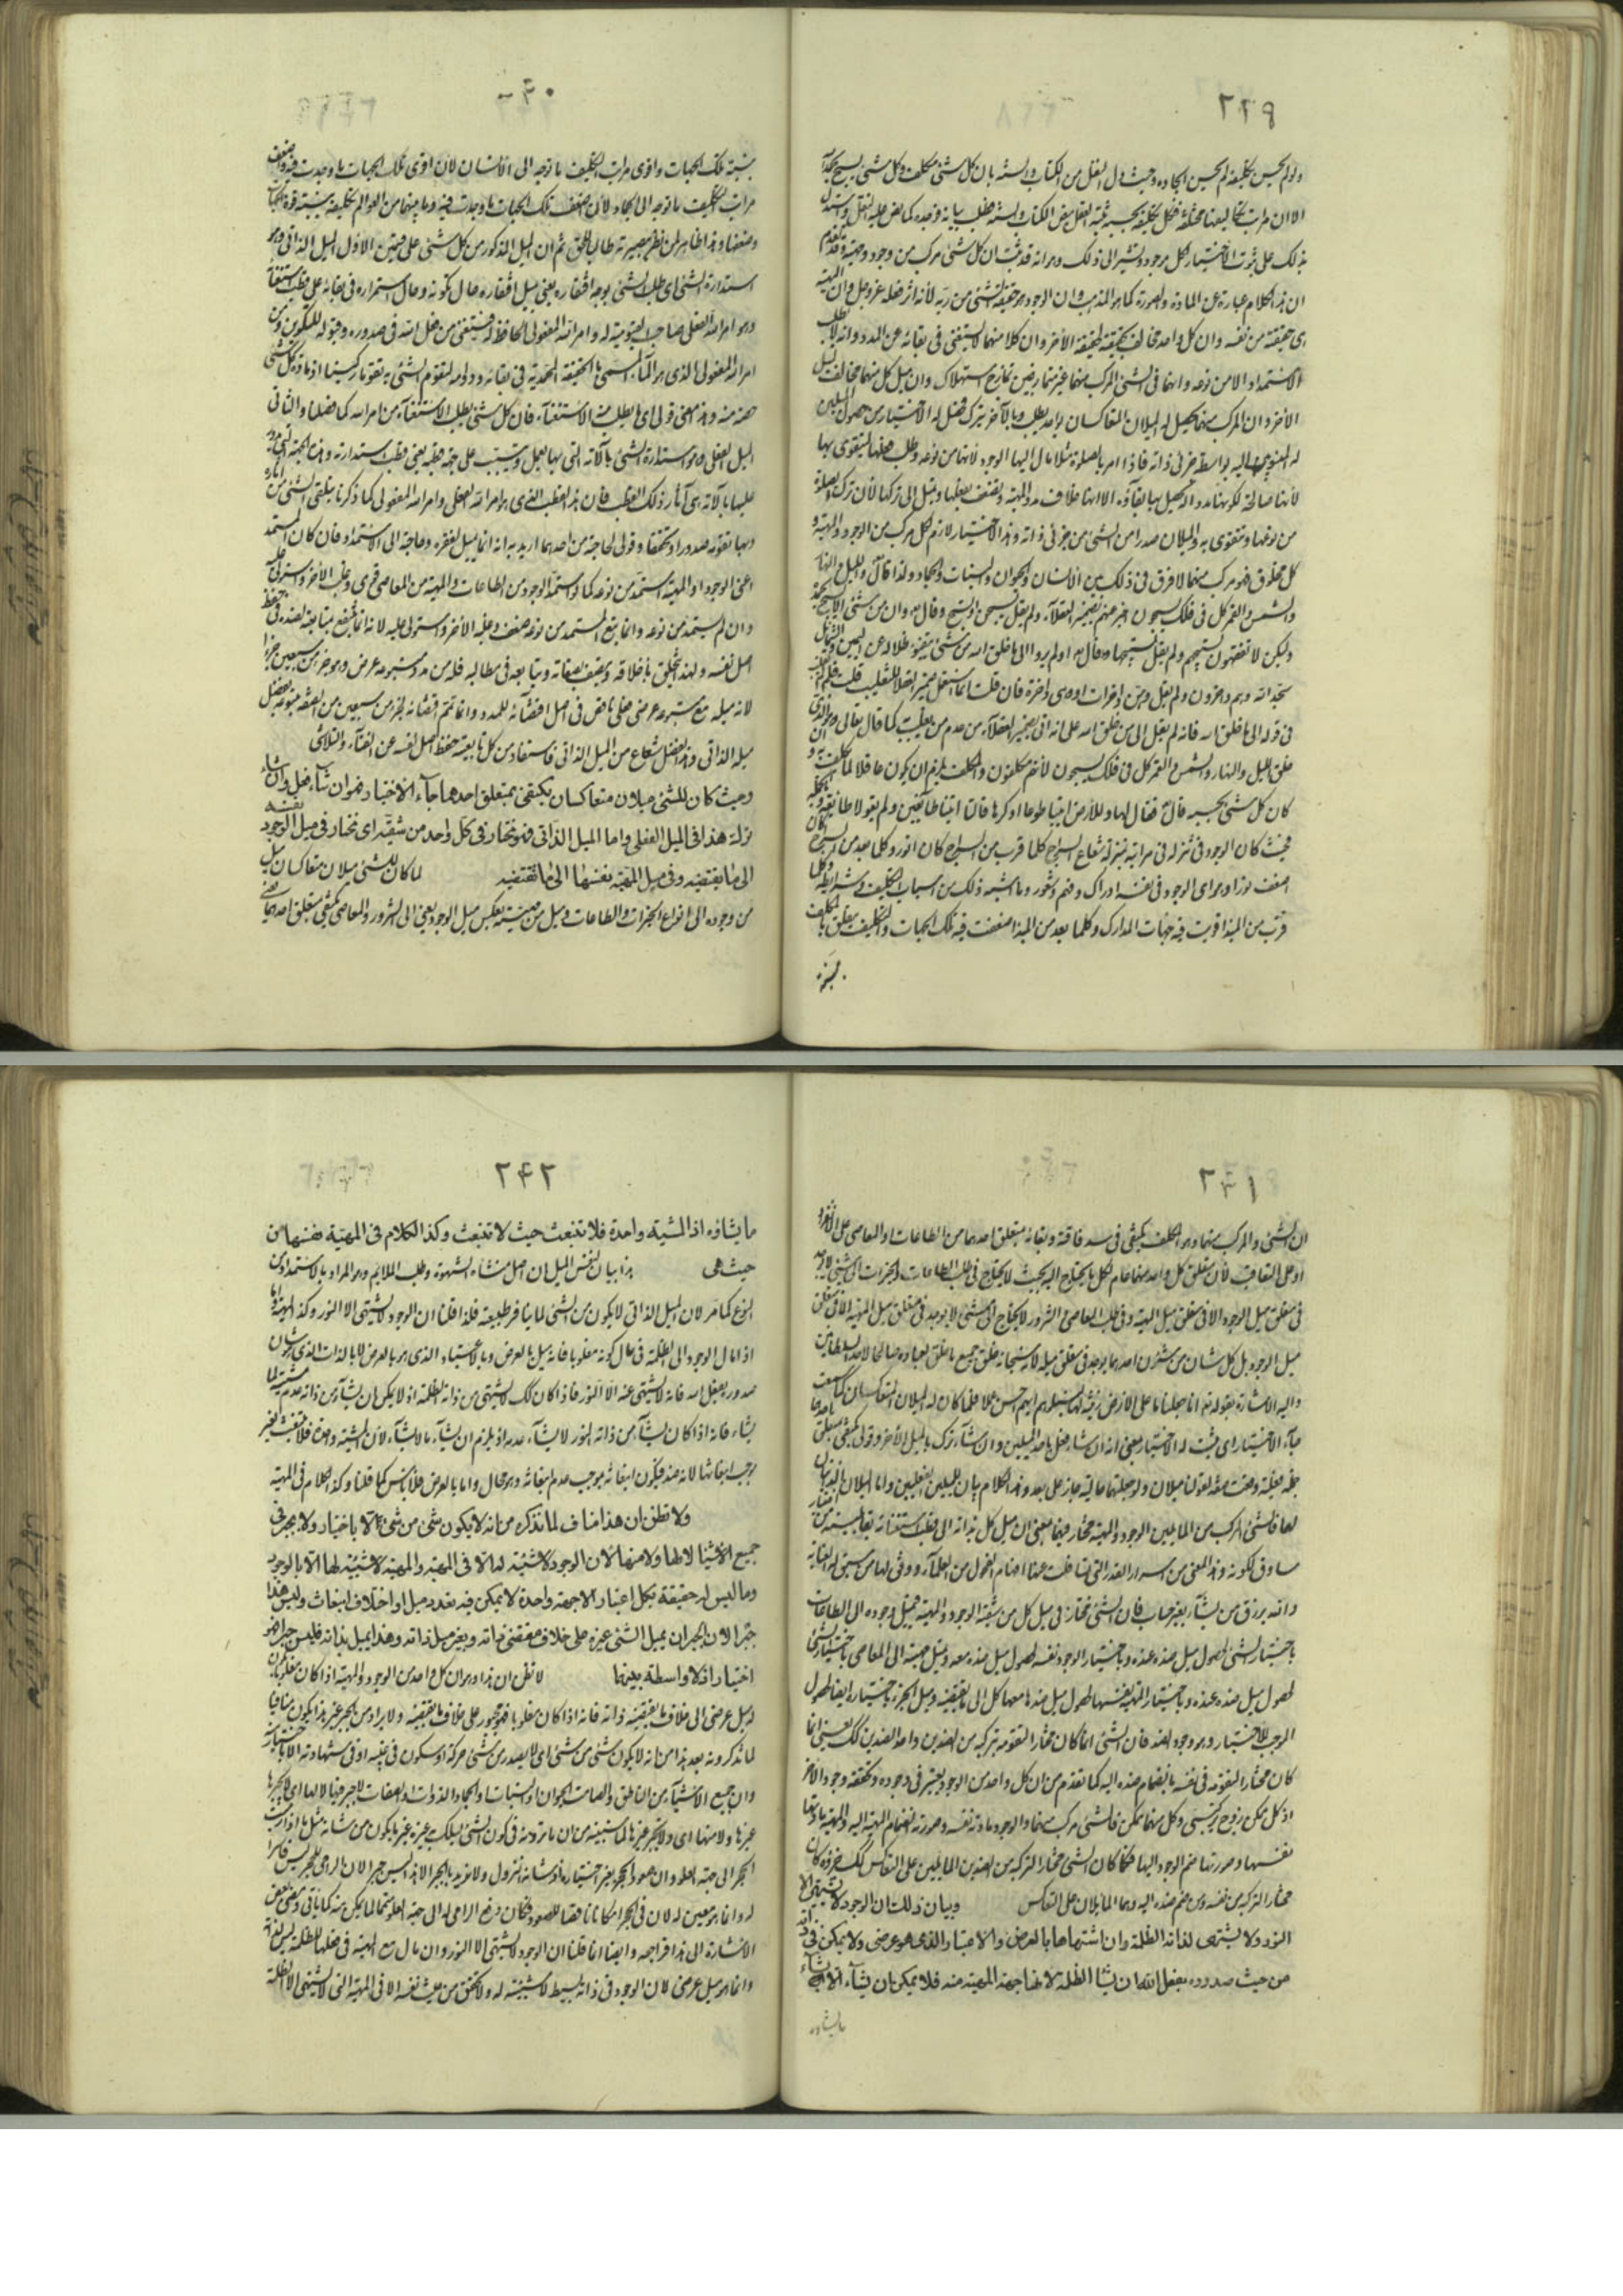 ٢٢٩
ولو لم يحسن تكليفه لم يحسن ايجاده وحيث دل العقل من الكتاب والسنة بان كل شئ مكلف وكل شئ يسبح بحمده
الا ان مراتب تكاليفها مختلفة فكل تكليفه بحسبه
بذلك على ثبوت الاختيار لكل موجود ونشير الى ذلك وهو انه قد ثبت ان كل شئ مركب من وجود ومهية وقد تقدم
ان هذا الكلام عبارة عن المادة والصورة كما هو المذهب وان الوجود هو حقيقة الشئ من ربه لانه اثر فعله عز وجل وان المهية
هى حقيقته من نفسه وان كل واحد مخالف بحقيقته لحقيقة الاخر وان كلا منهما لا يستغنى فى بقائه عن المدد وانه لا يطلب
الاستمداد الا من نوعه وانهما فى الشئ المركب منهما غير متمازجين تمازج استهلاك وان ميل كل منهما مخالف لميل
الاخر وان المركب منهما يحصل له الميلان المتعاكسان بواحد يطلب وبالاخر يترك فحصل له الاختيار من حصول الميلين
له المنسوبين اليه بواسطة جزئى ذاته فاذا امر بالصلوة مثلا مال اليها الوجود لانها من نوعه وطلب فعلها ليتقوى بها
لانها صالحة لكونها مددا له يحصل بها بقاؤه الا انها خلاف مدد المهية وتضعف بفعلها وتميل الى تركها لان ترك الصلوة
من نوعها وتتقوى به والميلان صدرا من الشئ من جزئى ذاته وهذا الاختيار لازم لكل مركب من الوجود والمهية و
كل مخلوق فهو مركب منهما لا فرق فى ذلك بين الانسان والحيوان والنبات والجماد ولذا قال تع والليل والنهار
والشمس والقمر كل فى فلك يسبحون اخبر عنهم بضمير العقلاء ولم يقل يسبحن او تسبح وقال تع وان من شئ الا يسبح بحمده
ولكن لا تفقهون تسبيحهم ولم يقل تسبيحها وقال تع اولم يروا الى ما خلق الله من شئ يتفيؤ ظلاله عن اليمين والشمائل
سجدا لله وهم داخرون ولم يقل وهن داخرات او وهى داخرة فان قلت انما استعمل ضمير العقلاء للتغليب قلت فلم
فى قوله الى ما خلق الله فانه لم يقل الى من خلق الله على انه اتى بضمير العقلاء من عدم من يغلب كما قال تعالى وهو الذى
خلق الليل والنهار والشمس والقمر كل فى فلك يسبحون لانهم مكلفون والمكلف يلزم ان يكون عاقلا لما كلف به و
كان كل شئ بحسبه قال تع فقال لها وللارض ائتيا طوعا او كرها قالتا اتينا طائعين ولم يقولا طائعة
فحيث كان الوجود فى تنزله فى مراتبه بمنزلة شعاع السراج كلما قرب من السراج كان انور وكلما بعد من السراج كان
اضعف نورا وهو اى الوجود فى نفسه ادراك وفهم وشعور وما اشبه ذلك من اسباب التكليف وشرايطه وكلما
قرب من المبدا قويت فيه جهات المدارك وكلما بعد من المبدا ضعفت فيه تلك الجهات والتكليف يتعلق بالمكلف
بنسبة
٢٣٠
بنسبة تلك الجهات واقوى مراتب التكليف ما توجه الى الانسان لان اقوى تلك الجهات ما وجدت فيه واضعف
مراتب التكليف ما توجه الى الجماد لان اضعف تلك الجهات ما وجدت فيه وما بينهما من العوالم تكليفه بنسبة قوة الجهات
وضعفها وهذا ظاهر لمن نظر ببصيرته طالبا للحق ثم ان الميل المذكور من كل شئ على قسمين الاول الميل الذاتى وهو
استدارة الشئ اى طلب الشئ بوجه افتقاره يعنى بميل افتقاره حال كونه وحال استمراره فى بقائه على قطب استغنائه
وهو امر الله الفعلى صاحب القيومية له وامر الله المفعولى الحافظ له فيستغنى من فعل الله فى صدوره وقبوله للتكوين ومن
امر الله المفعولى الذى هو الماء المسمى بالحقيقة المحمدية فى بقائه ودوامه لتقوم الشئ به تقوما ركنيا اذ مادة كل شئ
حصة منه وهذا معنى قولى اى ما يطلب منه الاستغناء فان كل شئ يطلب الاستغناء من امر الله كما فصلنا والثانى
الميل الفعلى وهو استدارة الشئ بآلاته التى بها يعمل وتسبب على جهة قطبه يعنى قطب استدارته وهذه الجهة التى يدور
عليها بآلاته هى آثار ذلك القطب فان هذا القطب الذى هو امر الله الفعلى وامر الله المفعولى كما ذكرنا يتلقى الشئ من آثاره
وبها تقوم صدورا وتحققا وقولى لحاجته من احدهما اريد به انه انما يميل لفقره وحاجته الى الاستمداد فان كان المستمد
اعنى الوجود او المهية مستمدا من نوعه كما لو استمد الوجود من الطاعات والمهية من المعاصى قوى وغلب الاخر واستولى عليه
وان لم يستمد من نوعه وانما يتبع المستمد من نوعه ضعف وغلبه الاخر واستولى عليه لانه انما ينتفع بمتابعة لضده فى حفظ
اصل نفسه ولهذا يتخلق باخلاقه ويتصف بصفاته ويتابعه فى مطالبه فله من مدد متبوعه عرض وهو جزء من سبعين جزءا
لان ميله مع متبوعه عرضى فعلى ناقص فى اصل اقتضائه للمدد وانما تمم اقتضائه لجزء من سبعين من الفضل
ميله الذاتى وهذا الفضل شعاع من الميل الذاتى فاستفاد من كل تابعية حفظ اصل نفسه عن الفناء والتلاشى
وحيث كان للشئ ميلان متعاكسان يكتفى بمتعلق احدهما جاء الاختيار فهو ان شاء فعل وان شاء
ترك هذا فى الميل الفعلى واما الميل الذاتى فهو مختار فى كل واحد من شقيه اى مختار فى ميل الوجود نفسه
الى ما يقتضيه وفى ميل المهية نفسها الى ما تقتضيه لما كان للشئ ميلان متعاكسان ميل
من وجوده الى انواع الخيرات والطاعات وميل من مهيته بعكس ميل الوجود يعنى الى الشرور والمعاصى يكتفى بمتعلق احدهما يعنى
٢٤١
ان الشئ المركب منهما وهو المكلف يكتفى فى سد فاقته وبقائه بمتعلق احدهما من الطاعات او المعاصى على الانفراد
او على التعاقب لان متعلق كل واحد منهما عام لكل ما يحتاج اليه بحيث لا يحتاج فى طلب الطاعات والخيرات الى شئ لا يوجد
فى متعلق ميل الوجود الا فى متعلق ميل المهية وفى طلب المعاصى والشرور لا يحتاج الى شئ لا يوجد فى متعلق ميل المهية الا فى متعلق
ميل الوجود بل كل شان من شئون احدهما يوجد فى متعلق ميله لانه سبحانه خلق جميع ما خلق لعباده صالحا لاحد السلطانين
واليه الاشارة بقوله تع انا جعلنا ما على الارض زينة لها لنبلوهم ايهم احسن عملا فلما كان له الميلان المتعاكسان
جاء الاختيار اى ثبت له الاختيار يعنى انه ان شاء فعل باحد الميلين وان شاء ترك بالميل الاخر وقولى يكتفى بمتعلق احدهما
جملة فعلية وقعت صفة لقولنا ميلان ولو جعلتها حالية جاز على بعد وهذا الكلام بيان للميلين الفعليين واما الميلان الذاتيان
لهما فالشئ المركب من المايلين الوجود والمهية مختار فيهما يعنى ان ميل كل بذاته الى قطب استغنائه
مساوق لكونه وهذا المعنى من اسرار القدر التى
والله يرزق من يشاء بغير حساب فان الشئ مختار فى ميل كل من شقيه الوجود والمهية فيميل وجوده الى الطاعات
باختيار الشئ لحصول ميل ضده عنده وباختيار الوجود نفسه لحصول ميل ضده معه وتميل مهيته الى المعاصى باختيار الشئ
لحصول ميل ضده عنده وباختيار المهية نفسها لحصول ميل ضدها معها كل الى ما يقتضيه وميل الجزء باختياره ايضا لحصول
الموجب للاختيار وهو وجود الضد فان الشئ انما كان مختارا لتقومه بتركبه من الضدين واحد الضدين كك يعنى انما
كان مختارا لتقومه فى نفسه بانضمام ضده اليه كما تقدم من ان كل واحد من الوجود يعتبر فى وجوده وتحققه وجود الاخر
اذ كل ممكن زوج تركيبى وكل منهما ممكن فالشئ مركب منهما والوجود مادته نفسه وصورته انضمام المهية اليه والمهية مادتها
نفسها وصورتها ضم الوجود اليها فكما كان الشئ مختارا لتركبه من الضدين المايلين على التعاكس كك جزؤه كان
مختارا لتركبه من نفسه ومن ضم ضده اليه وهما المايلان على التعاكس وبيان ذلك ان الوجود لا يشتهى الا
النور ولا يشتهى لذاته الظلمة وان اشتهاها بالعرض والاعتبار الذى هو عرضى ولا يمكن فى ذاته
من حيث صدوره بفعل الله ان يشاء الظلمة لانها جهة المهية منه فلا يمكن ان يشاء الا ما يشاء
ما يشاؤه
٢٤٢
ما يشاؤه اذ المشية واحدة فلا تنبعث حيث لا تنبعث وكذا الكلام فى المهية نفسها من
حيث هى هذا بيان لنفس الميل ان اصل منشاه الشهوة وطلب الملايم وهو المراد بالاستمداد من
النوع كما مر لان الميل الذاتى لا يكون من الشئ لما ينافر طبيعته فلذا قلنا ان الوجود لا يشتهى الا النور وكذا المهية
اذا مال الوجود الى الظلمة فى حال كونه مغلوبا فانه يميل بالعرض وبالاعتبار الذى هو بالعرض لا بالذات الذى
صدوره بفعل الله فانه لا يشتهى عنه الا النور فاذا كان كك لا يشتهى من ذاته الظلمة اذ لا يمكن ان يشاء من ذاته عدم ما
يشاء فانه اذا كان يشاء من ذاته النور لا يشاء عدمه اذ يلزم ان يشاء ما لا يشاء لان المشية واحدة فلا تنبعث بغير
موجب انبعاثها لانه ضد فيكون انبعاثه موجب عدم انبعاثه وهو محال واما بالعرض فلا باس كما قلنا وكذا الكلام فى المهية
ولا تظن ان هذا مناف لما نذكره من انه لا يكون شئ من شئ الا باختيار ولا يجبر فى
جميع الاشياء لا لها ولا منها لان الوجود لا شيئية له الا فى المهية والمهية لا شيئية لها الا بالوجود
وما ليس له حقيقة بكل اعتبار الا جهة واحدة لا يمكن فيه تعدد ميل او اختلاف انبعاث وليس هذا
جبرا لان الجبر ان يميل الشئ غيره على خلاف مقتضى ذاته وبغير ميل ذاته وهذا يميل بذاته فليس جبرا فهو
اختيار اذ لا واسطة بينهما لا تظن ان هذا وهو ان كل واحد من الوجود والمهية اذا كان مغلوبا يكون
له ميل عرضى الى خلاف ما يقتضيه ذاته فانه اذا كان مغلوبا فهو مجبور على خلاف ما يقتضيه ولا يراد من الجبر غير هذا يكون منافيا
لما نذكره بعد هذا من انه لا يكون شئ من شئ اى لا يصدر من شئ حركة او سكون فى غيبه او فى شهادته الا باختياره
وان جميع الاشياء من الناطق والصامت الحيوان والنبات والجماد الذوات والصفات لا جبر فيها لا لها اى لا يجبرها
غيرها ولا منها اى ولا تجبر غيرها لما سنبينه من ان ما تراه فى كون الشئ يسلك به غيره بغير ما يكون من شانه مثل ما اذا رميت
الحجر الى جهة العلو وان صعود الحجر بغير اختياره اذ شانه النزول ولا نريد بالجبر الا هذا ليس جبرا لان الرامى للحجر ليس قاسرا
له وانما هو معين له لان فى الحجر امكانا ناقصا للصعود فكان دفع الرامى له الى جهة العلو متمما لما يمكن منه كما ياتى
الاشارة الى هذا فراجعه وايضا انا قلنا ان الوجود لا يشتهى الا النور وان مال مع المهية فى فعلها للظلمة ليس لذاته
وانما هو ميل عرضى لان الوجود فى ذاته بسيط لا شيئية له ولا تحقق من حيث نفسه الا فى المهية التى لا تشتهى الا الظلمة